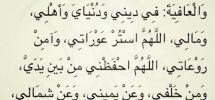 وَالْعَافِيَةَ: فِي دِينِي وَدُنْيَايَ وَأَهْلِي،
وَمَالِي، اللَّهُمَّ اسْتُرْ عَوْرَاتِي، وَآمِنْ
رَوْعَاتِي، اللَّهُمَّ احْفَظْنِي مِنْ بَيْنِ يَدَيَّ،
وَمِنْ خَلْفِي، وَعَنْ يَمِينِي، وَعَنْ شِمَالِي،